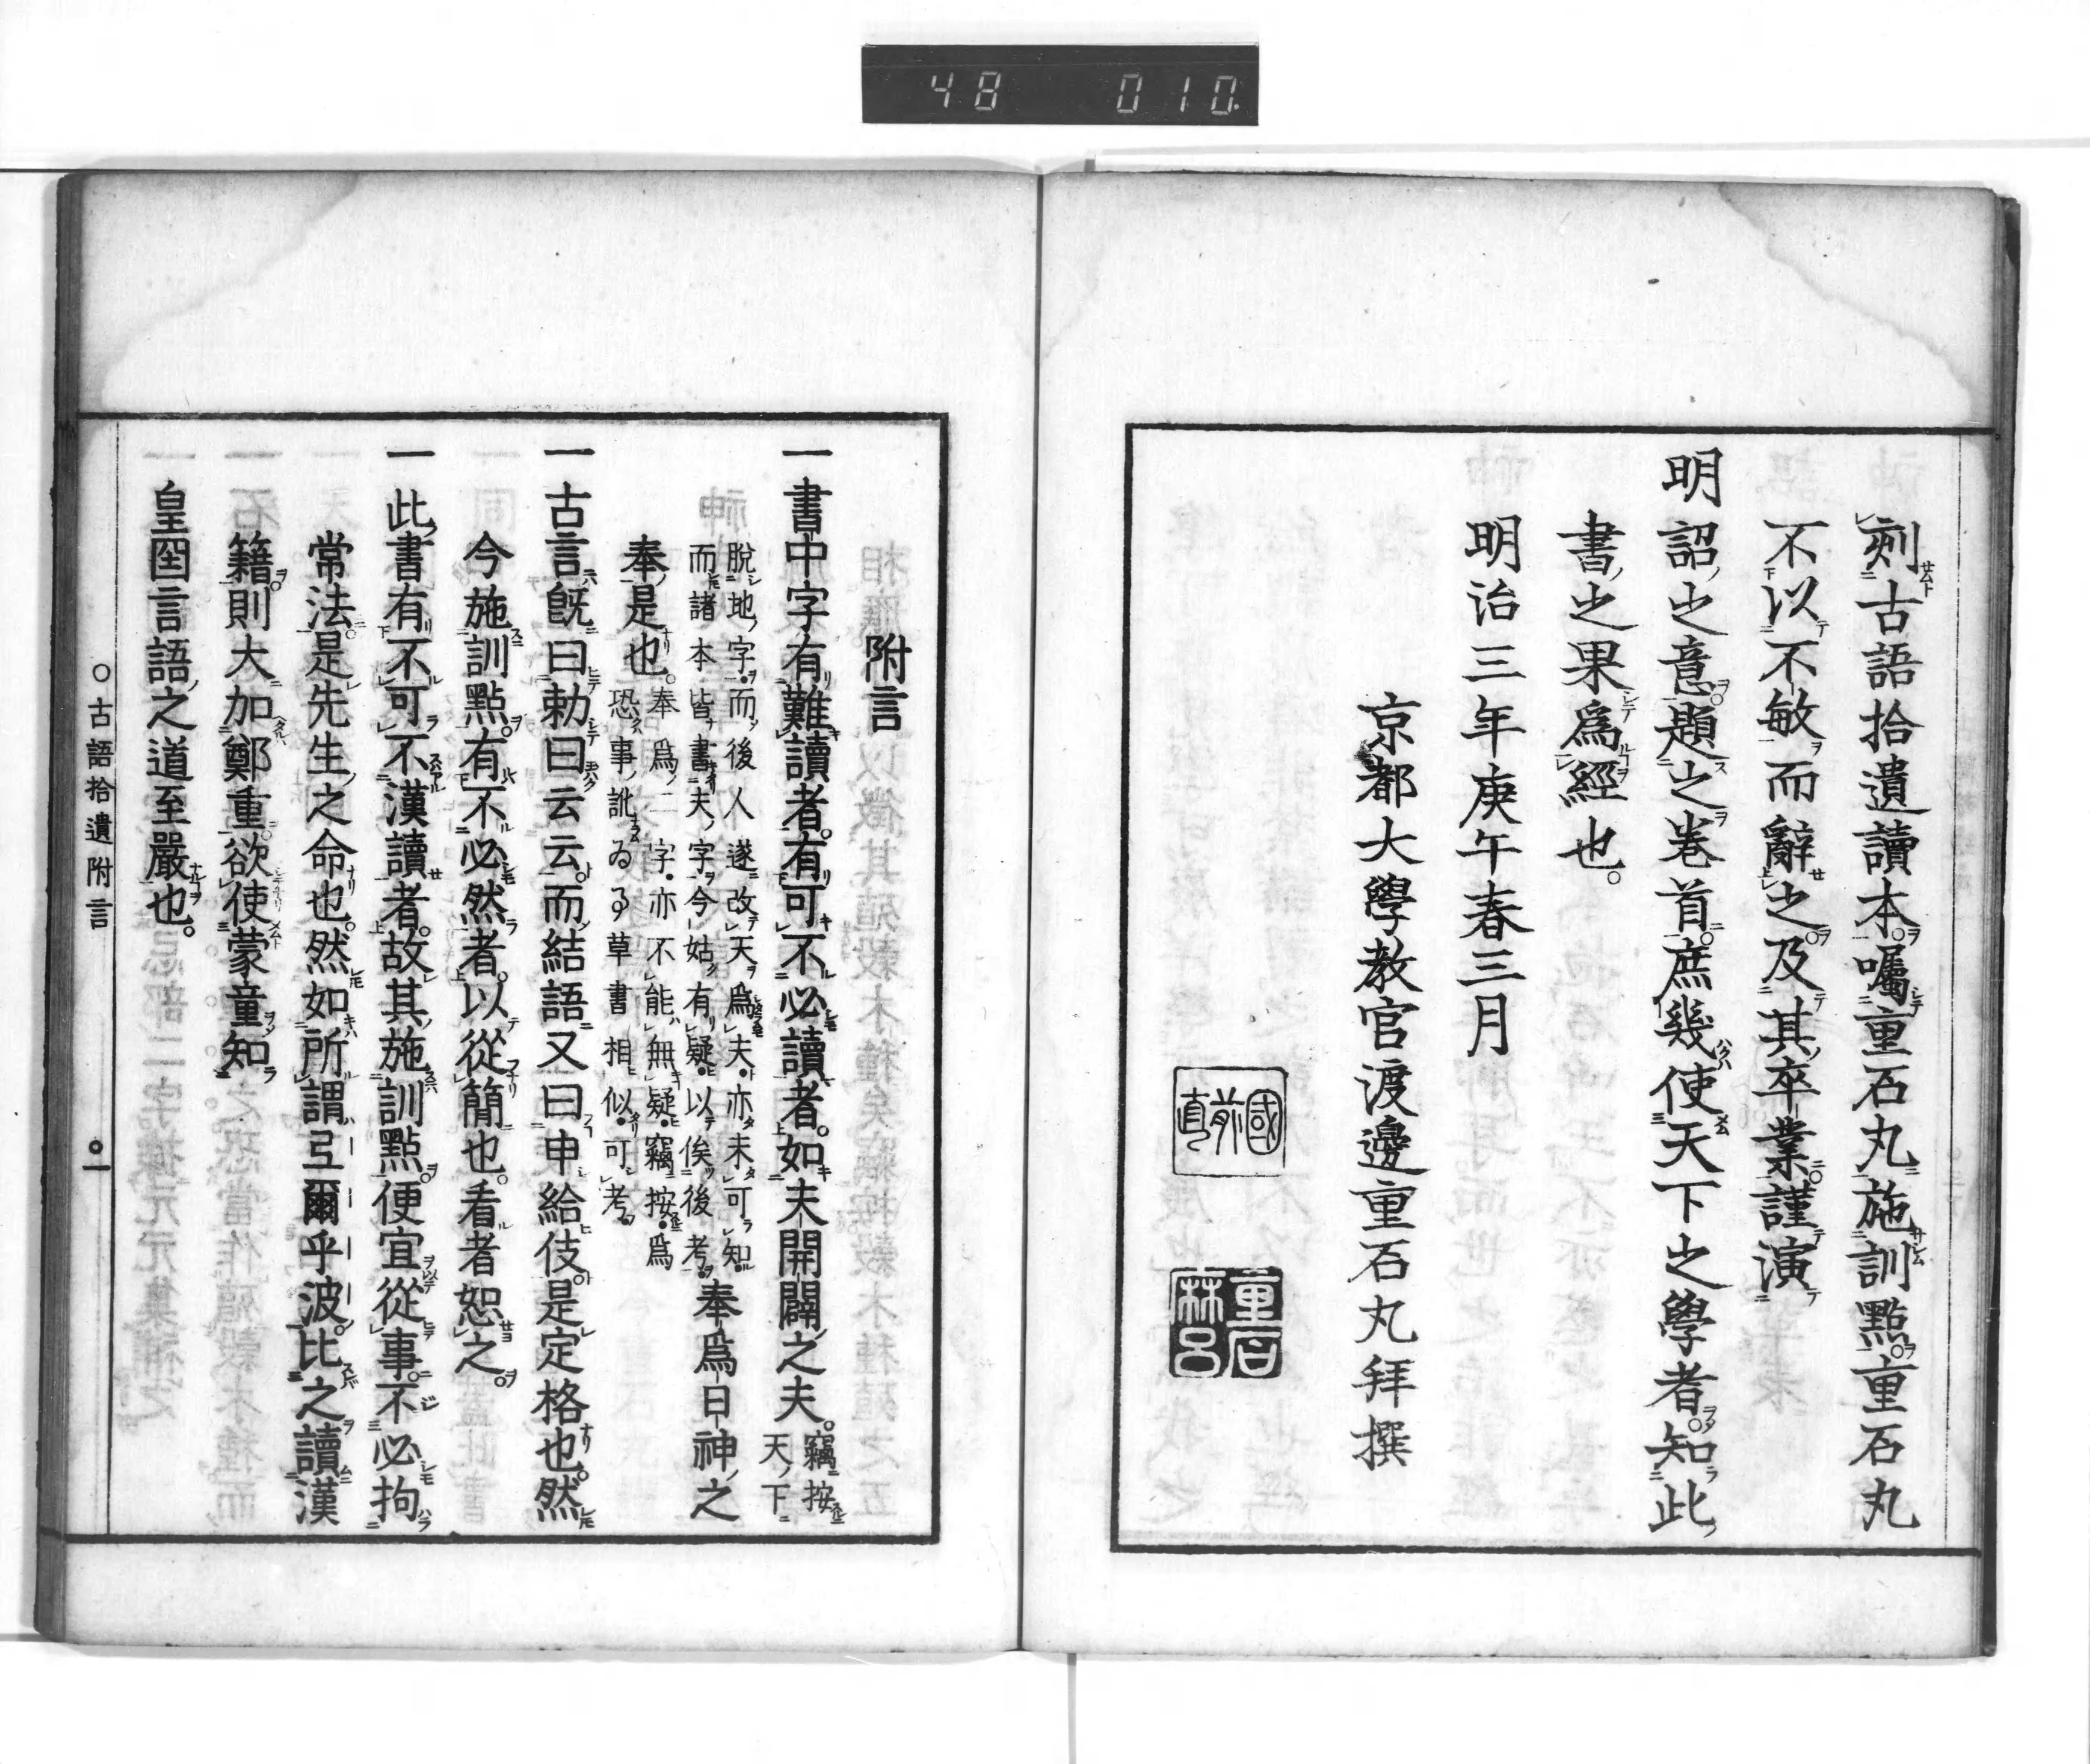 48 010.
刻古語拾遺讀本。囑重石丸施訓點。重石丸
不以不敏而辭之。及其卒業。謹演
明詔之意。題之卷首。庶幾使天下之學者。知此
書之果爲經也。
明治三年庚午春三月
京都大學教官渡邊重石丸拜撰
國前
直
重石
麻呂
附言
一書中字有難讀者。有可不必讀者。如夫開闢之夫。竊按天下
脫地字。而後人遂改天爲夫。亦未可知。
而諸本皆書夫字。今姑有疑。以俟後考。奉爲日神之
奉是也。奉爲二字。亦不能無疑。竊按。爲
恐事訛。ゐる草書相似。可考。
一古言旣曰勅曰云云。而結語又曰申給伎。是定格也。然
今施訓點。有不必然者。以從簡也。看者恕之。
一此書有不可不漢讀者。故其施訓點。便宜從事。不必拘
常法。是先生之命也。然如所謂弖爾乎波。比之讀漢
籍。則大加鄭重。欲使蒙童知
皇国言語之道至嚴也。
○古語拾遺附言 ○一